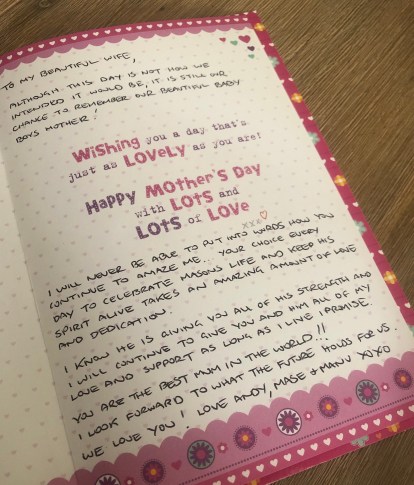 TO MY BEAUTIFUL WIFE,
ALTHOUGH THIS DAY IS NOT HOW WE
INTENDED IT WOULD BE, IT IS STILL OUR
CHANCE TO REMEMBER OUR BEAUTIFUL BABY
BOYS MOTHER!
Wishing you a day that's
just as LOVELY as you are!
Happy Mother's Day
with LOTS and
LOTS of LOVE
xxx
I WILL NEVER BE ABLE TO PUT INTO WORDS HOW YOU
CONTINUE TO AMAZE ME.. YOUR CHOICE EVERY
DAY TO CELEBRATE MASONS LIFE AND KEEP HIS
SPIRIT ALIVE TAKES AN AMAZING AMOUNT OF LOVE
AND DEDICATION.
I KNOW HE IS GIVING YOU ALL OF HIS STRENGTH AND
I WILL CONTINUE TO GIVE YOU AND HIM ALL OF MY
LOVE AND SUPPORT AS LONG AS I LIVE I PROMISE.
YOU ARE THE BEST MUM IN THE WORLD!!
I LOOK FORWARD TO WHAT THE FUTURE HOLDS FOR US.
WE LOVE YOU! LOVE ANDY, MASE & MANU XOXO